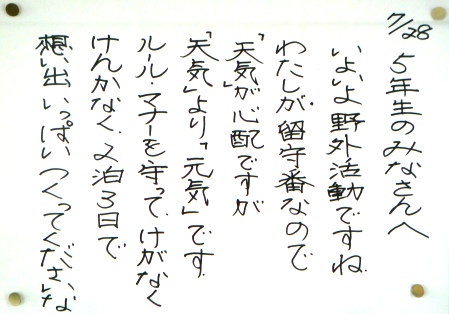 7/28 5年生のみなさんへ
いよいよ野外活動ですね.
わたしが留守番なので
「天気」が心配ですが
「天気」より「元気」です.
ルール・マナーを守って、けがなく
けんかなく、2泊3日で
想い出いっぱいつくってくださいな